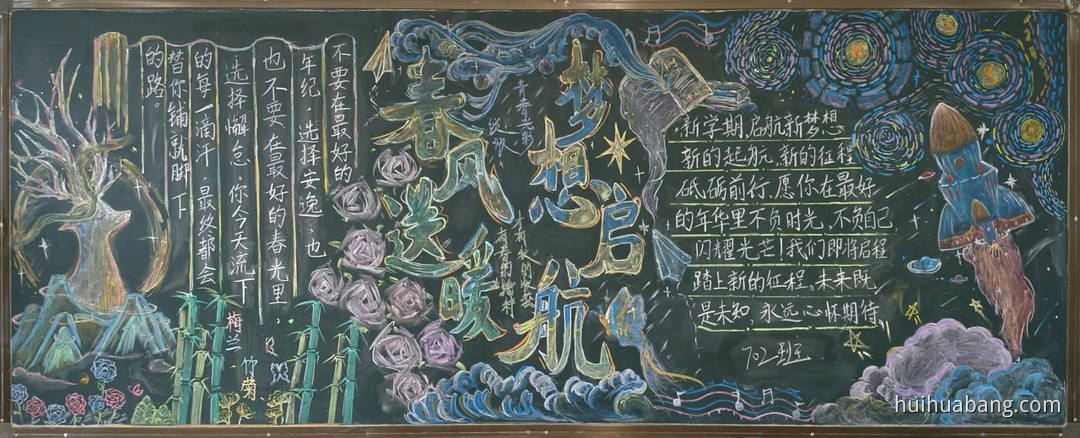 不要在最好的
年纪 选择安逸,也
也不要在最好的春光里,
选择懈怠,你今天流下
的每一滴汗,最终都会
替你铺就脚下
的路。
梅兰
竹菊
春风送暖
梦想启航
新学期,启航新梦想
新的起航,新的征程
砥砺前行,愿你在最好
的年华里不负时光,不负自己
闪耀光芒!我们即将启程
踏上新的征程,未来既
是未知,永远心怀期待
702班
huihuabang.com